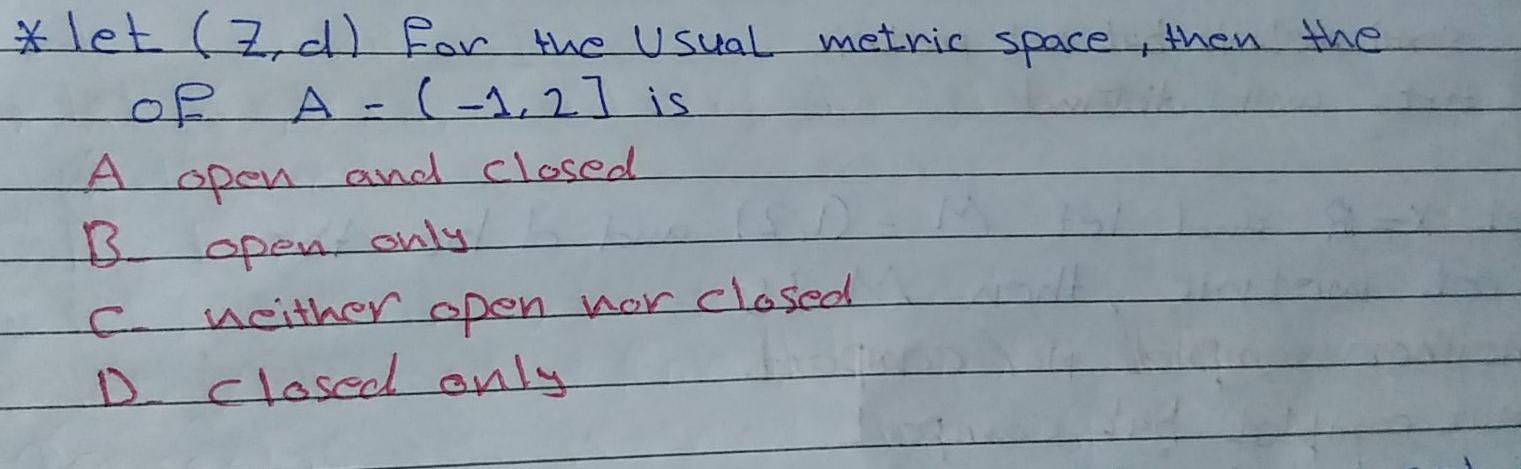 * let (Z, d) For the Usual metric space, then the
of A = (-1, 2] is
A open and closed
B- open only
C- neither open nor closed
D- closed only